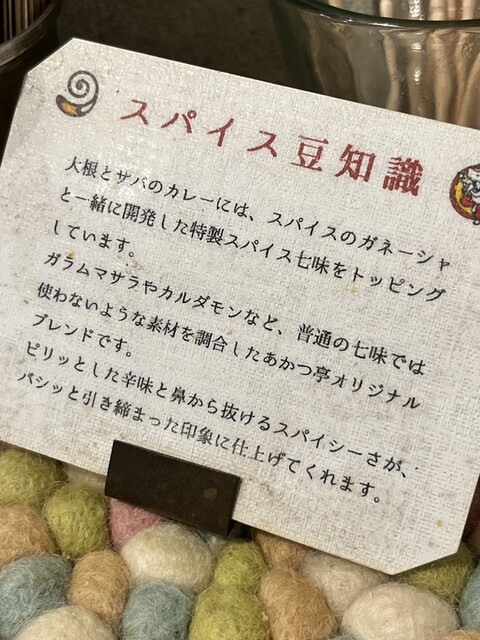 スパイス豆知識
大根とサバのカレーには、スパイスのガネーシャ
と一緒に開発した特製スパイス七味をトッピング
しています。
ガラムマサラやカルダモンなど、普通の七味では
使わないような素材を調合したあかつ亭オリジナル
ブレンドです。
ピリッとした辛味と鼻から抜けるスパイシーさが、
パシッと引き締まった印象に仕上げてくれます。